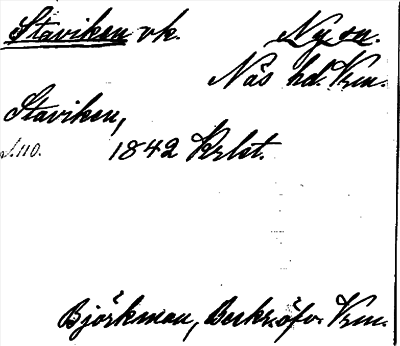 Staviken vk. Ny sn.
Näs hd. Vrm.
Staviken,
s. 110. 1842 Krlst.
Björkman, Beskr. öfv. Vrm.